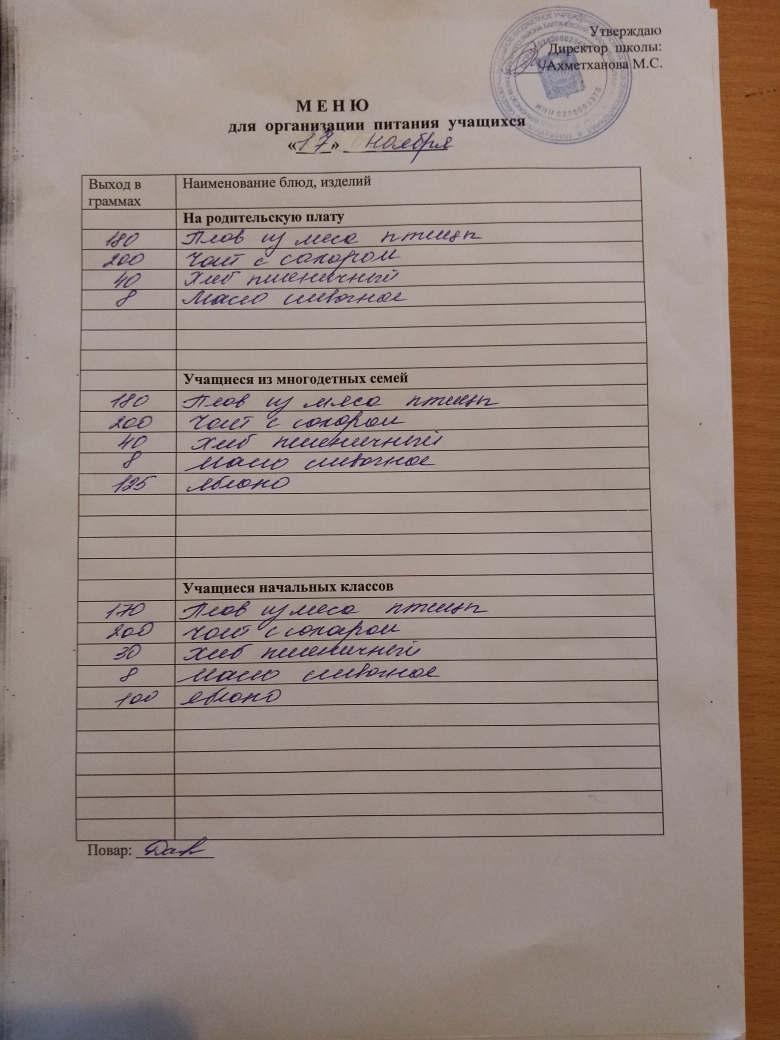 Утверждаю
Директор школы:
Ахметханова М.С.
М Е Н Ю
для организации питания учащихся
«17» ноября
Выход в граммах Наименование блюд, изделий
На родительскую плату
180 Плов из меса птицы
200 Чай с сахаром
40 Хлеб пшеничный
8 Масло сливочное
Учащиеся из многодетных семей
180 Плов из мяса птицы
200 Чай с сахаром
40 Хлеб пшеничный
8 Масло сливочное
125 яблоко
Учащиеся начальных классов
170 Плов из меса птицы
200 Чай с сахаром
30 Хлеб пшеничный
8 Масло сливочное
100 яблоко
Повар: